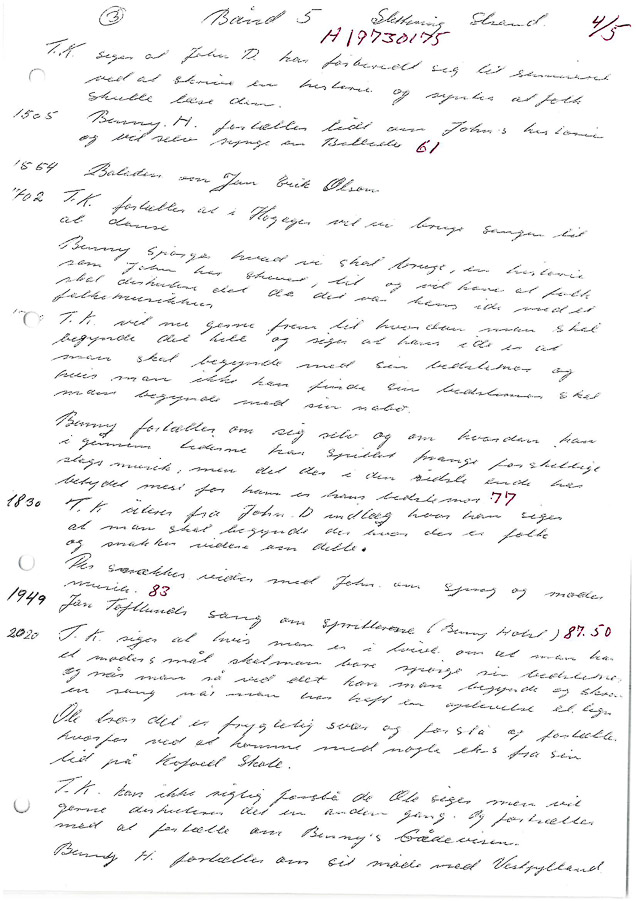 3 Bånd 5 Slettning Strand. 4/5
H 19730175
T.K. siger at John D. har forberedt sig til seminaret
ved at skrive en historie og synes at folk
skulle læse den.
1505 Benny. H. fortæller lidt om John's historie
og vil selv synge en Ballade 61
1554 Baladen om Jan Erik Olson
T.K. fortæller at i vil vi bruge sangen til
at danse
Benny spørger hvad vi skal bruge, en historie
som John har skrevet, til og vil have at folk
skal diskutere det da det var hans ide med et
folkemusikhus
T.K. vil nu gerne frem til hvordan man skal
begynde det hele og siger at hans ide er at
man skal begynde med sin bedstemor og
hvis man ikke kan finde sin bedstemor skal
man begynde med sin nabo.
Benny fortæller om sig selv og om hvordan han
i gennem tiderne har spillet mange forskellige
slags musik, men det der i den sidste ende har
betydet mest for ham er hans bedstemor 77
1830 T.K. fra John. D indlæg hvor han siger
at man skal begynde der hvor der er folk
og snakker videre om dette.
Per snakker videre med John. om sprog og moders
musik. 83
1949 Jan Toftlunds sang om spritterne (Benny Holst) 87.50
2020 T.K. siger at hvis man er i tvivl om at man har
et moders mål skal man bare spørge sin bedstemor
og når man så ved det kan man begynde og skrive
en sang når man har haft en oplevelse el. lign
Ole tror det er frygtelig svær og forstå og fortælle
hvorfor ved at komme med nogle eks fra sin
tid på Kofoed Skole.
T.K. kan ikke rigtig forstå de Ole siger men vil
gerne diskutere det en anden gang. Og fortsætter
med at fortælle om Benny's Gådevisen.
Benny H. fortæller om sit møde med Vestjylland